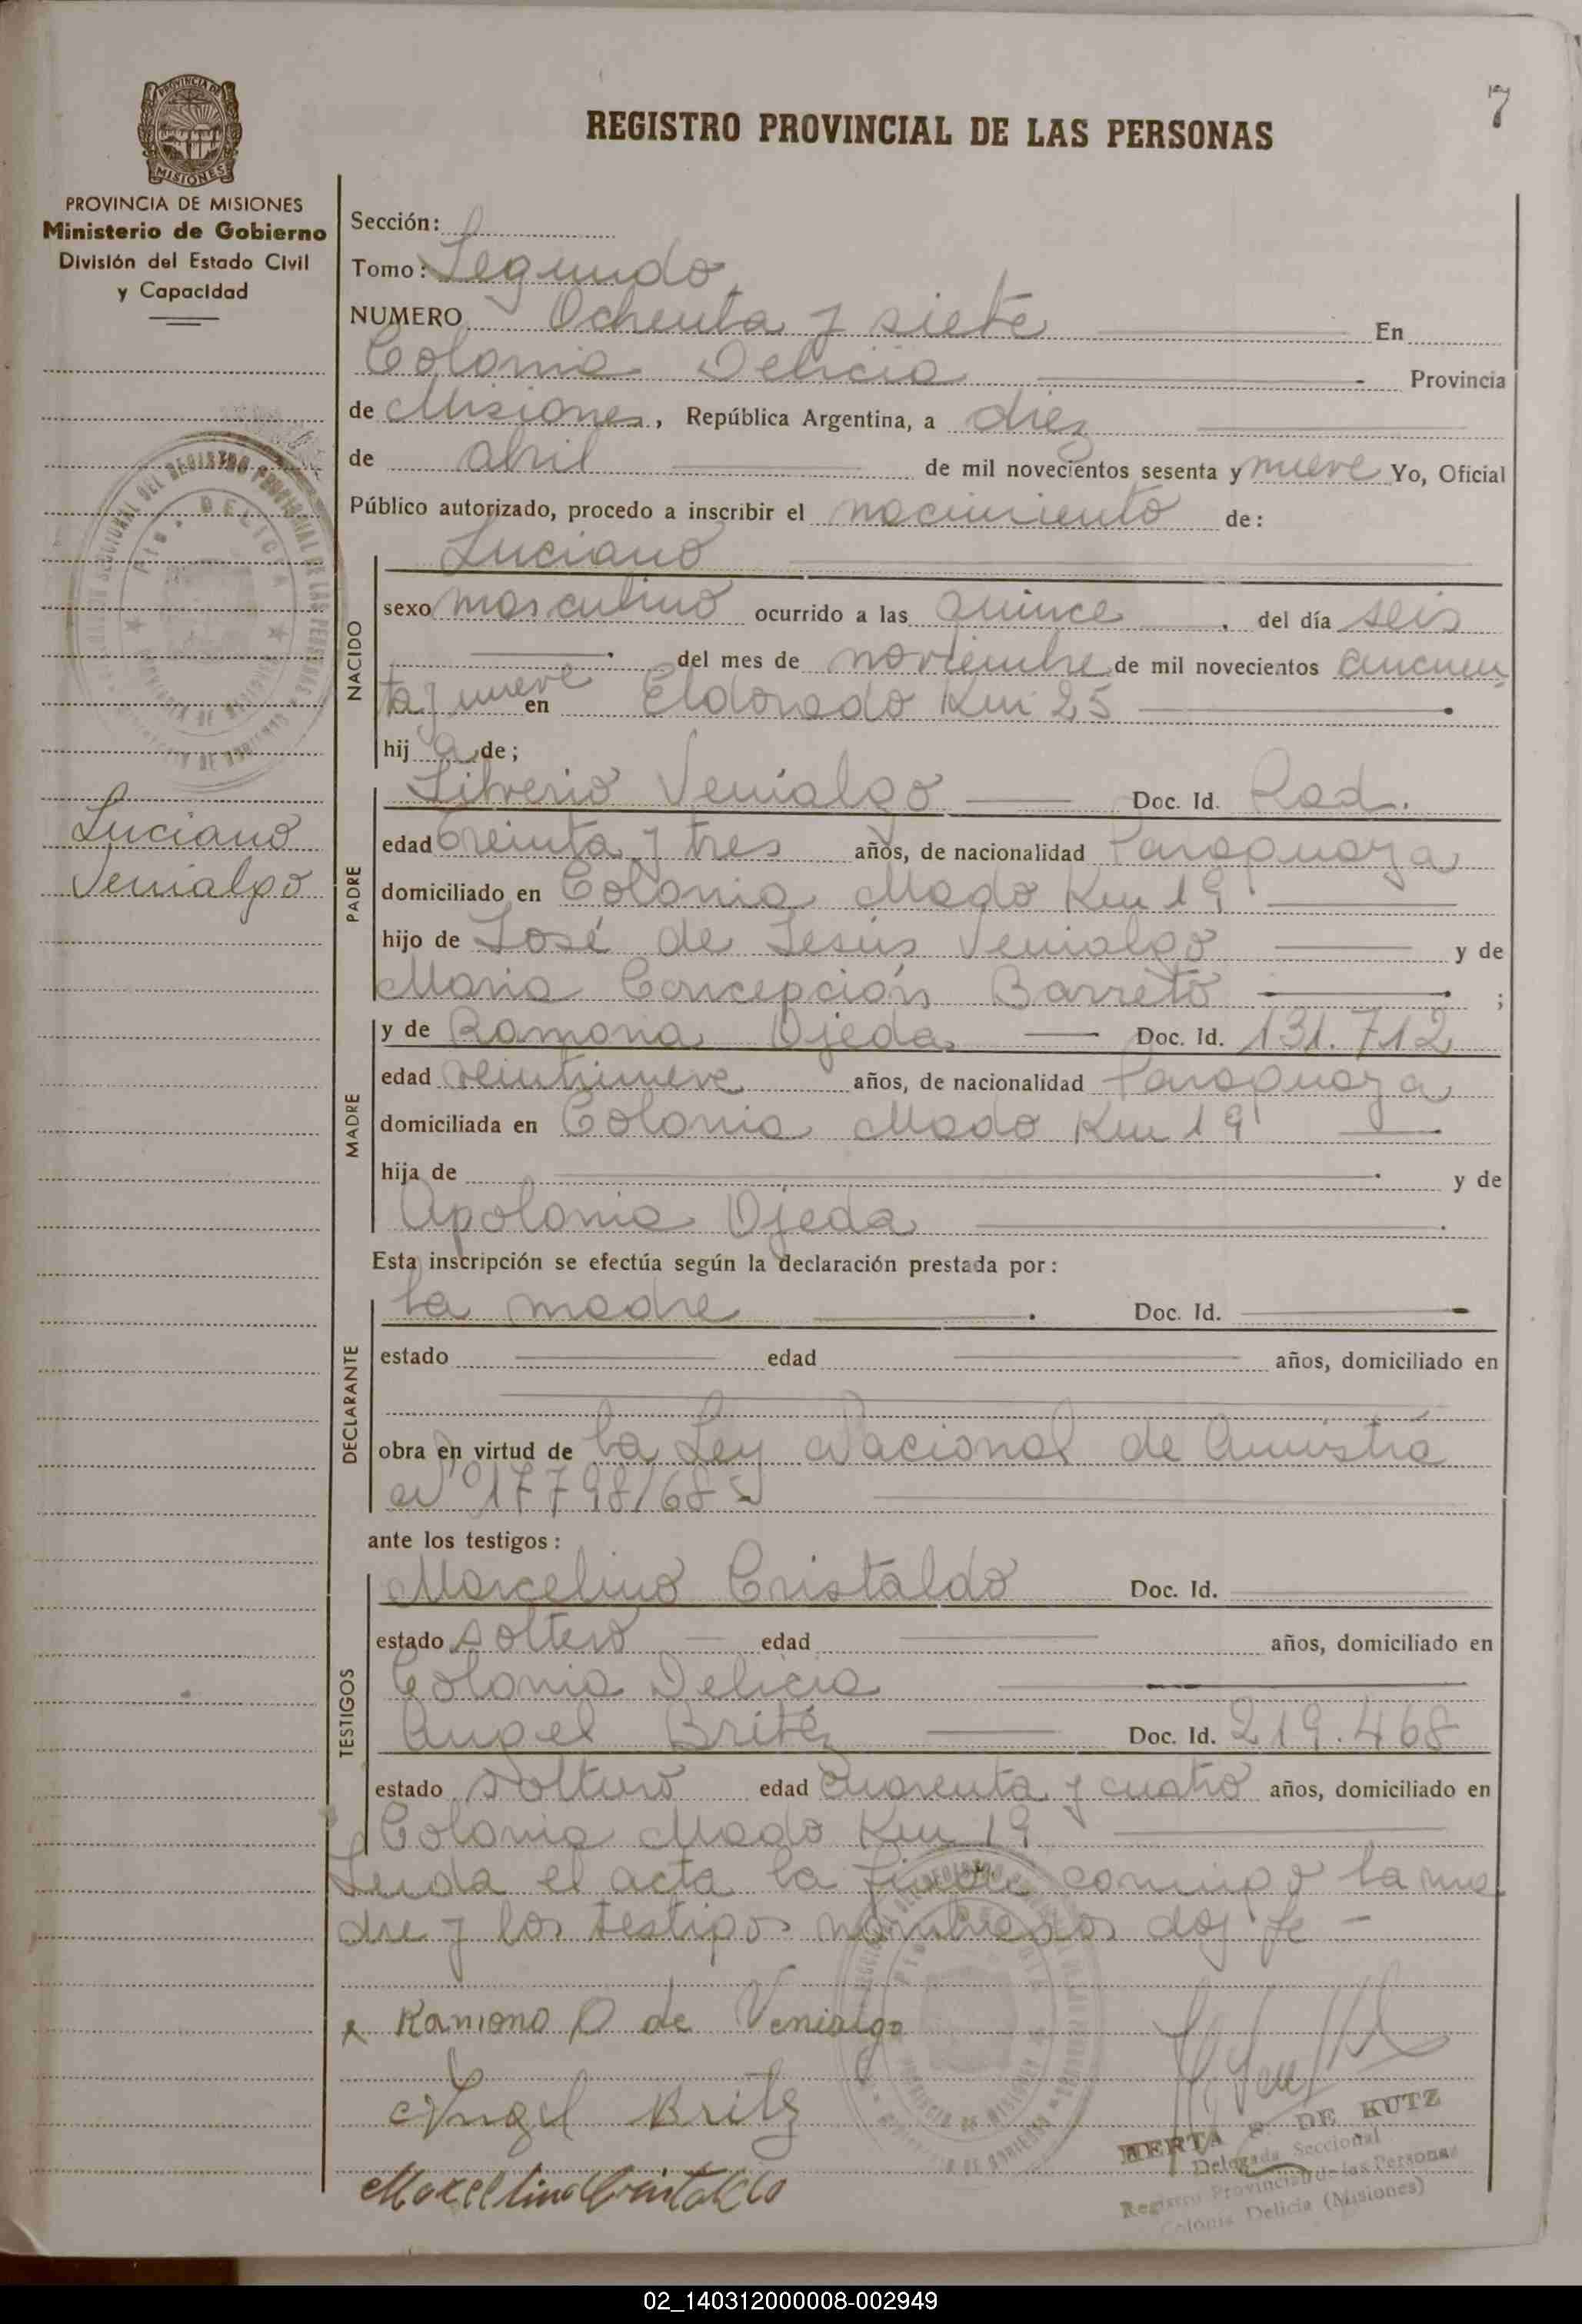 7
REGISTRO PROVINCIAL DE LAS PERSONAS
PROVINCIA DE MISIONES
PROVINCIA DE MISIONES
Ministerio de Gobierno
División del Estado Civil
y Capacidad
Sección:
Tomo: Segundo
NUMERO Ochenta y siete En
Colonia Delicia Provincia
de Misiones, República Argentina, a diez
de abril de mil novecientos sesenta y nueve Yo, Oficial
Público autorizado, procedo a inscribir el nacimiento de:
NACIDO
Luciano
sexo masculino ocurrido a las quince del día seis
del mes de noviembre de mil novecientos cincuen
ta y nueve en Eldorado Km 25
hij o de;
Luciano
Venialgo
PADRE
Liberio Venialgo Doc. Id. Rad.
edad treinta y tres años, de nacionalidad Paraguaya
domiciliado en Colonia Mado Km 19
hijo de José de Jesús Venialgo y de
Maria Concepción Barreto ;
MADRE
y de Ramona Ojeda Doc. Id. 131.712
edad veintinueve años, de nacionalidad Paraguaya
domiciliada en Colonia Mado Km 19
hija de y de
Apolonia Ojeda
Esta inscripción se efectúa según la declaración prestada por:
DECLARANTE
la madre Doc. Id.
estado edad años, domiciliado en
obra en virtud de la Ley Nacional de Amnistía
Nº 17798/68
ante los testigos:
TESTIGOS
Marcelino Cristaldo Doc. Id.
estado soltero edad años, domiciliado en
Colonia Delicia
Angel Britez Doc. Id. 219.468
estado soltero edad cuarenta y cuatro años, domiciliado en
Colonia Mado Km 19
Leida el acta la firman conmigo la ma
dre y los testigos nombrados doy fe
Ramona O de Venialgo
Angel Britez
Marcelino Cristaldo
HERTA S. DE KUTZ
Delegada Seccional
Registro Provincial de las Personas
Colonia Delicia (Misiones)
02_140312000008-002949